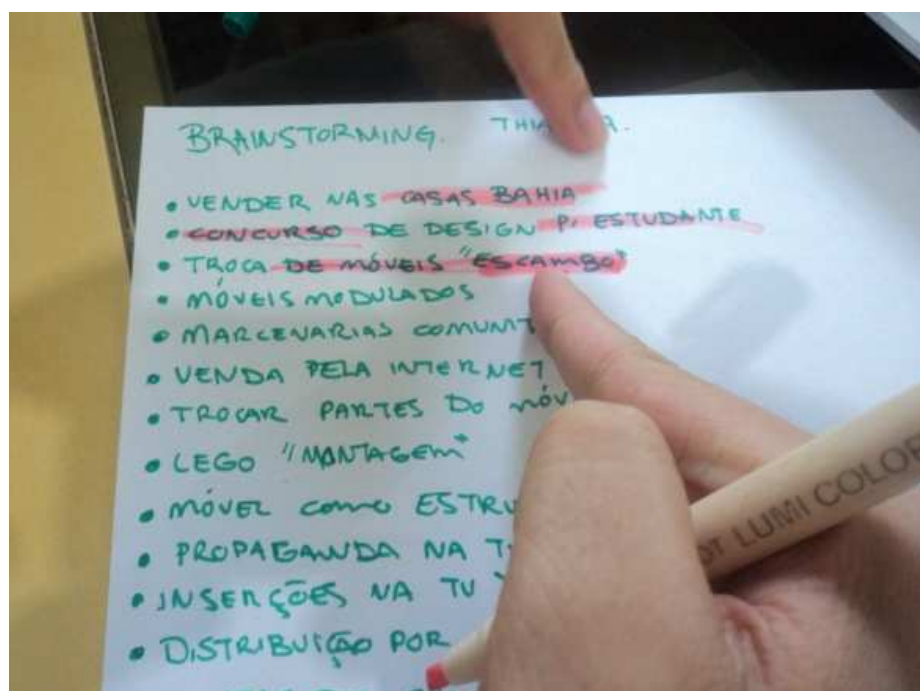 BRAINSTORMING.
• VENDER NAS CASAS BAHIA
• CONCURSO DE DESIGN P/ ESTUDANTE
• TROCA DE MÓVEIS "ESCAMBO"
• MÓVEIS MODULADOS
• MARCENARIAS
• VENDA PELA INTERNET
• TROCAR PARTES DO
• LEGO "MONTAGEM"
• MÓVEL COMO
• PROPAGANDA NA
• INSERÇÕES NA TV
• DISTRIBUIÇÃO POR
LUMI COLOR